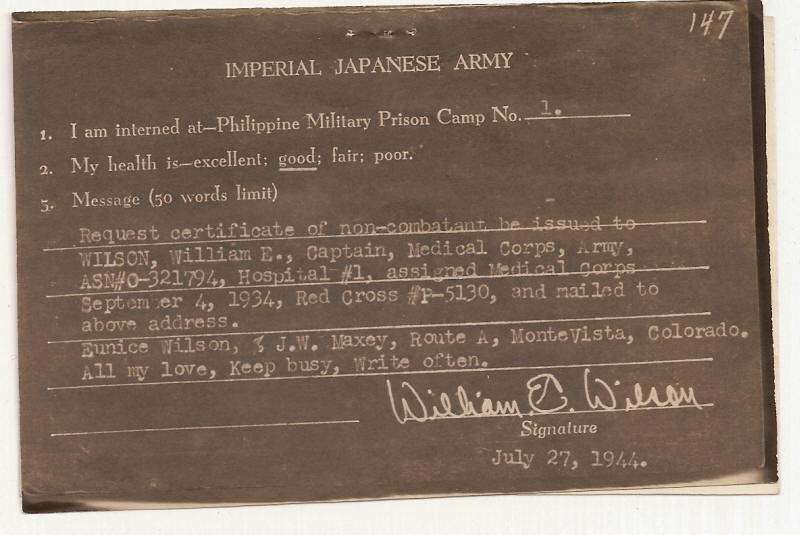 147
IMPERIAL JAPANESE ARMY
1. I am interned at—Philippine Military Prison Camp No. 1.
2. My health is—excellent; good; fair; poor.
3. Message (50 words limit)
Request certificate of non-combatant be issued to
WILSON, William E., Captain, Medical Corps, Army,
ASN#O-321794, Hospital #1, assigned Medical Corps
September 4, 1934, Red Cross #P-5130, and mailed to
above address.
Eunice Wilson, % J.W. Maxey, Route A, MonteVista, Colorado.
All my love, Keep busy, Write often.
William E. Wilson
Signature
July 27, 1944.